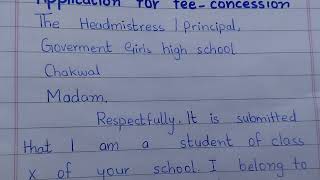 Application for fee-concession
The Headmistress / Principal,
Goverment Girls high school
Chakwal
Madam,
Respectfully. It is submitted
that I am a student of class
x of your school. I belong to